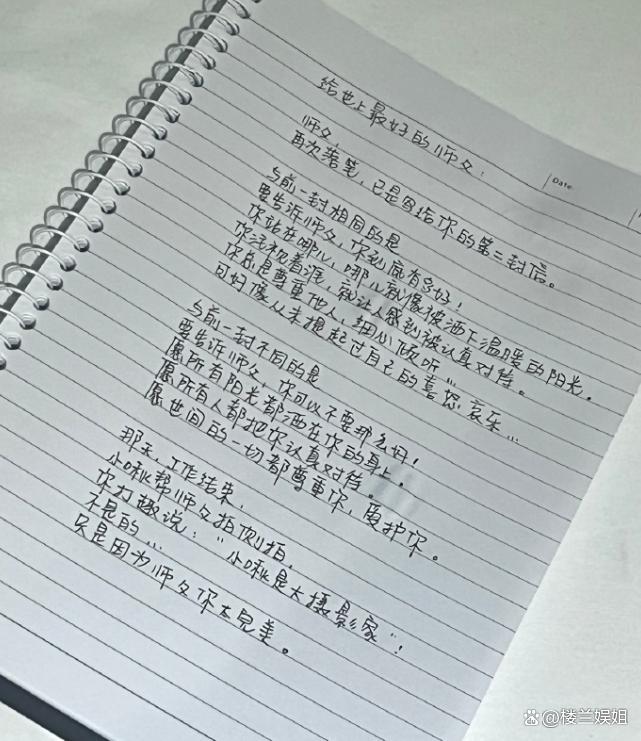 给世上最好的师父:
Date
师父,
再次落笔,已是写给你的第二封信。
与前一封相同的是
要告诉师父,你到底有多好!
你站在哪儿,哪儿就像被洒下温暖的阳光。
你注视着谁,就让人感到被认真对待。
你总是尊重他人,细心倾听…
可好像从未提起过自己的喜怒哀乐…
与前一封不同的是
要告诉师父,你可以不要那么好!
愿所有阳光都洒在你的身上。
愿所有人都把你认真对待。
愿世间的一切都尊重你,爱护你。
那天,工作结束,
小啾帮师父拍侧拍,
你打趣说:“小啾是大摄影家”!
不是的…
只是因为师父你太完美。
@楼兰娱姐